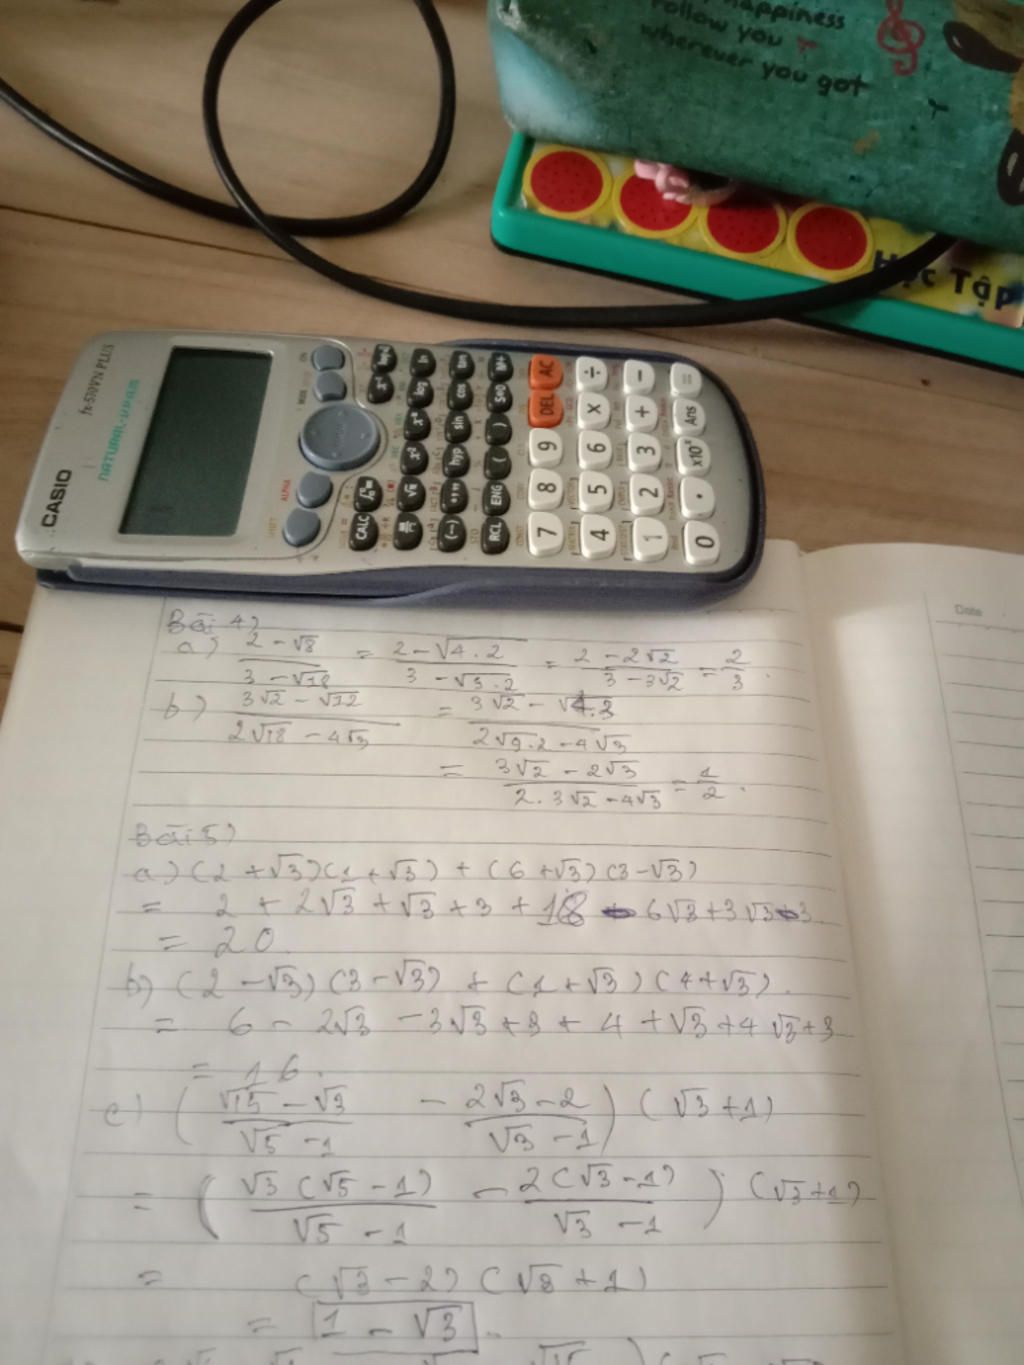 happiness
follow you
wherever you got
Học Tập
CASIO
fx-570VN PLUS
NATURAL-V.P.A.M.
ON
MODE
ALPHA
SHIFT
CALC
x²
log
ln
(-)
hyp
sin
cos
tan
RCL
ENG
(
)
S⇔D
M+
7 8 9 DEL AC
4 5 6 × ÷
1 2 3 + −
0 . ×10ˣ Ans =
Date
Bài 4)
a) (2 − √8)/(3 − √18) = (2 − √4.2)/(3 − √9.2) = (2 − 2√2)/(3 − 3√2) = 2/3.
b) (3√2 − √12)/(2√18 − 4√3) = (3√2 − √4.3)/(2√9.2 − 4√3)
= (3√2 − 2√3)/(2.3√2 − 4√3) = 1/2.
Bài 5)
a) (2 + √3)(1 + √3) + (6 + √3)(3 − √3)
= 2 + 2√3 + √3 + 3 + 18 − 6√3 + 3√3 − 3
= 20.
b) (2 − √3)(3 − √3) + (1 + √3)(4 + √3).
= 6 − 2√3 − 3√3 + 3 + 4 + √3 + 4√3 + 3
= 16.
c) ((√15 − √3)/(√5 − 1) − (2√3 − 2)/(√3 − 1)) (√3 + 1)
= ((√3(√5 − 1))/(√5 − 1) − (2(√3 − 1))/(√3 − 1)) (√3 + 1)
= (√3 − 2)(√3 + 1)
= 1 − √3.